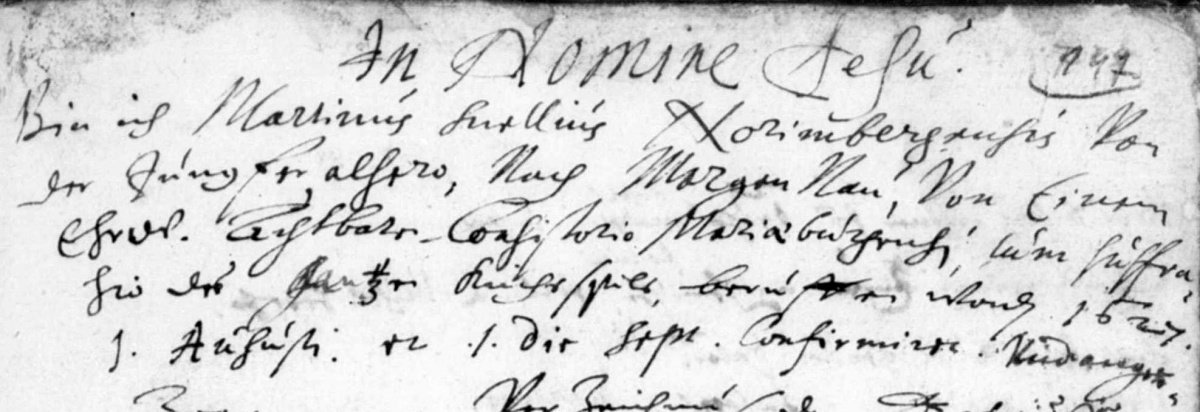 In Nomine Jesu. 147
Bin ich Martinus Snellius Norimbergensis Von
der Jungfer alhero, Nach Morgen Nau, Von Einem
Ehrw. Achtbare Consistorio Mariaeburgensi, zum suffra
sio des gantze Kirchspils, beruffen word 1627.
1. Augusti. et 1. Die Sept. Confirmiret.
Von